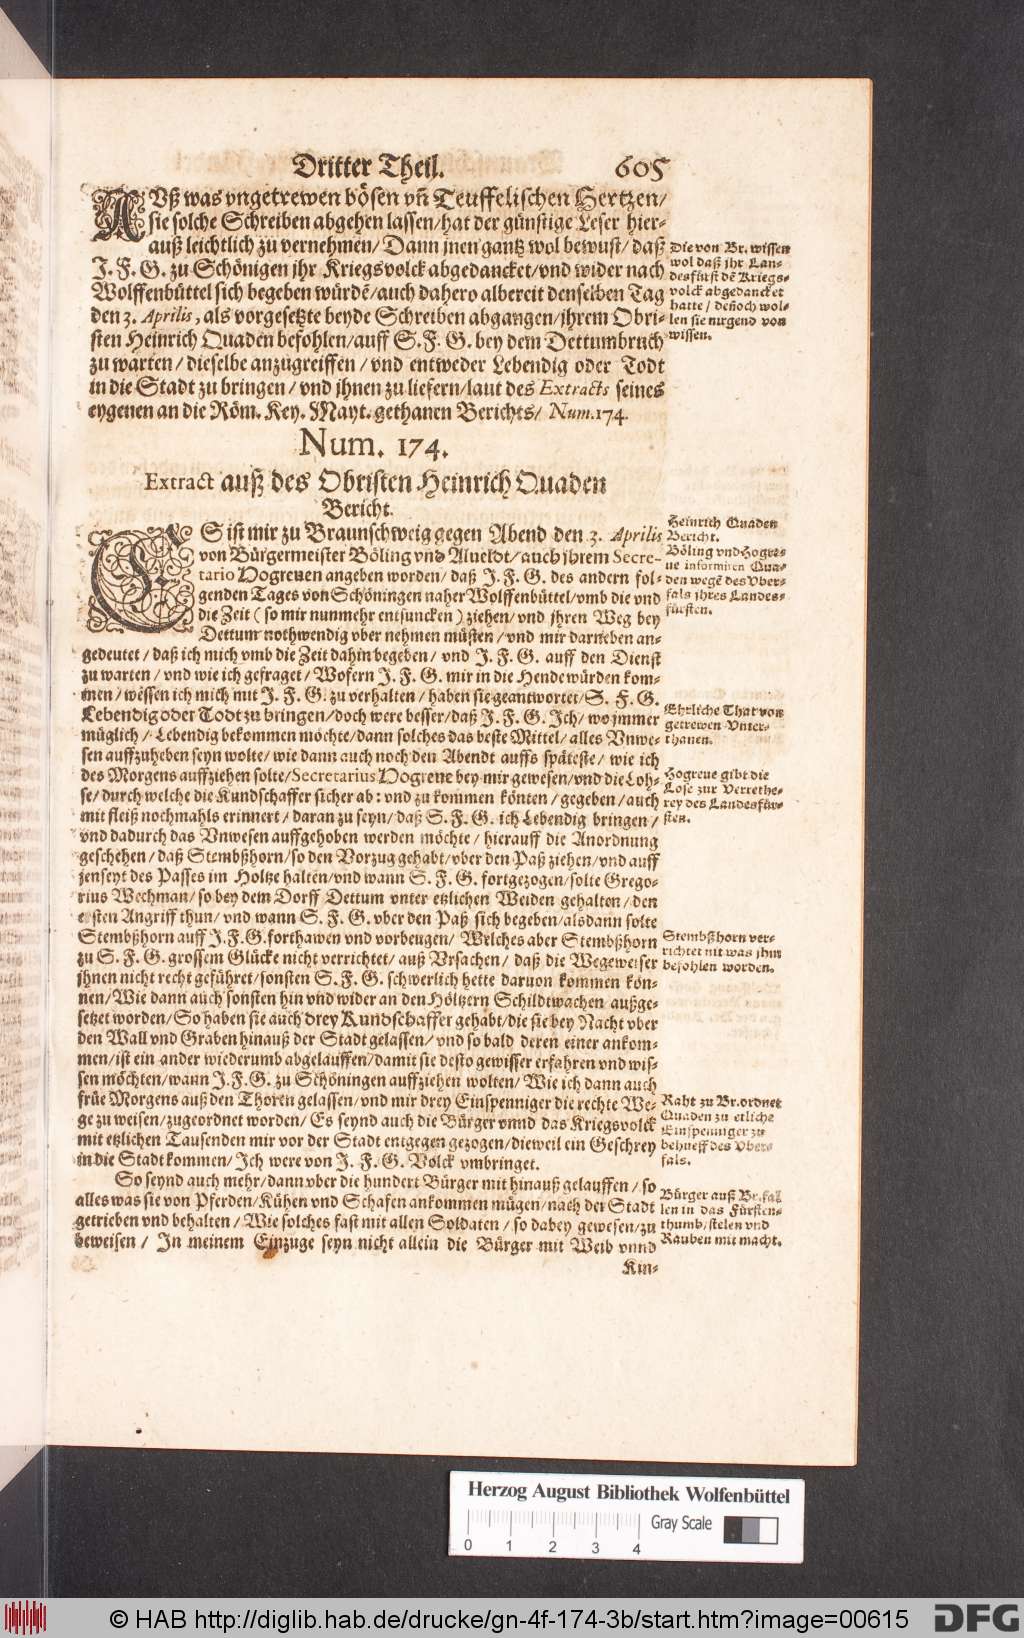 Dritter Theil. 605
AUß was vngetrewen bösen vñ Teuffelischen Hertzen/
sie solche Schreiben abgehen lassen/hat der günstige Leser hier-
auß leichtlich zu vernehmen/Dann jnen gantz wol bewust/ daß
J. F. G. zu Schönigen jhr Kriegsvolck abgedancket/vnd wider nach
Wolffenbüttel sich begeben würdẽ/auch dahero albereit denselben Tag
den 3. Aprilis, als vorgesetzte beyde Schreiben abgangen/jhrem Obri-
sten Heinrich Quaden befohlen/auff S. F. G. bey dem Dettumbruch
zu warten/dieselbe anzugreiffen/vnd entweder Lebendig oder Todt
in die Stadt zu bringen/ vnd jhnen zu liefern/laut des Extracts seines
eygenen an die Röm. Key. Mayt. gethanen Berichts/ Num.174.
Die von Br. wissen
wol daß jhr Lan-
desfürst dẽ Kriegs-
volck abgedancket
hatte/ deñoch wol-
len sie nirgend von
wissen.
Num. 174.
Extract auß des Obristen Heinrich Quaden
Bericht.
ES ist mir zu Braunschweig gegen Abend den 3. Aprilis
von Bürgermeister Böling vnd Alueldt/auch jhrem Secre-
tario Hogreuen angeben worden/ daß J. F. G. des andern fol-
genden Tages von Schöningen naher Wolffenbüttel/vmb die vnd
die Zeit (so mir nunmehr entfuncken) ziehen/vnd jhren Weg bey
Dettum nothwendig vber nehmen müsten/vnd mir darneben an-
gedeutet/daß ich mich vmb die Zeit dahin begeben/ vnd J. F. G. auff den Dienst
zu warten/vnd wie ich gefraget/Wofern J. F. G. mir in die Hende würden kom-
men/wessen ich mich mit J. F. G. zu verhalten/haben sie geantwortet/S. F. G.
Lebendig oder Todt zu bringen/doch were besser/daß J. F. G. Ich/wo jmmer
müglich/Lebendig bekommen möchte/dann solches das beste Mittel/alles Vnwe-
sen auffzuheben seyn wolte/wie dann auch noch den Abendt auffs späteste/ wie ich
des Morgens auffziehen solte/Secretarius Hogreue bey mir gewesen/vnd die Loh-
se/durch welche die Kundschaffer sicher ab: vnd zu kommen könten/gegeben/auch
mit fleiß nochmahls erinnert/daran zu seyn/daß S. F. G. ich Lebendig bringen/
vnd dadurch das Vnwesen auffgehoben werden möchte/hierauff die Anordnung
geschehen/daß Stembßhorn/so den Vorzug gehabt/vber den Paß ziehen/vnd auff
jenseyt des Passes im Holtze halten/vnd wann S. F. G. fortgezogen/solte Grego-
rius Wechman/so bey dem Dorff Dettum vnter etzlichen Weiden gehalten/den
ersten Angriff thun/vnd wann S. F. G. vber den Paß sich begeben/alsdann solte
Stembßhorn auff J.F.G.forthawen vnd vorbeugen/ Welches aber Stembßhorn
zu S. F. G. grossem Glücke nicht verrichtet/ auß Vrsachen/ daß die Wegeweiser
jhnen nicht recht geführet/sonsten S. F. G. schwerlich hette daruon kommen kön-
nen/Wie dann auch sonsten hin vnd wider an den Höltzern Schildtwachen außge-
setzet worden/So haben sie auch drey Kundschaffer gehabt/die sie bey Nacht vber
den Wall vnd Graben hinauß der Stadt gelassen/vnd so bald deren einer ankom-
men/ist ein ander wiederumb abgelauffen/damit sie desto gewisser erfahren vnd wis-
sen möchten/wann J.F.G. zu Schöningen auffziehen wolten/ Wie ich dann auch
früe Morgens auß den Thoren gelassen/vnd mir drey Einspenniger die rechte We-
ge zu weisen/zugeordnet worden/ Es seynd auch die Bürger vnnd das Kriegsvolck
mit etzlichen Tausenden mir vor der Stadt entgegen gezogen/dieweil ein Geschrey
in die Stadt kommen/Ich were von J. F. G. Volck vmbringet.
So seynd auch mehr/dann vber die hundert Bürger mit hinauß gelauffen/so
alles was sie von Pferden/Kühen vnd Schafen ankommen mügen/nach der Stadt
getrieben vnd behalten/Wie solches fast mit allen Soldaten/so dabey gewesen/zu
beweisen/ In meinem Einzuge seyn nicht allein die Bürger mit Weib vnnd
Kin-
Heinrich Quaden
Bericht.
Böling vnd Hogre-
ue informiren Qua-
den wegẽ des Vber-
fals jhres Landes-
fürsten.
Ehrliche That von
getrewen Vnter-
thanen.
Hogreue gibt die
Lose zur Verrethe-
rey des Landesfür-
sten.
Stembßhorn ver-
richtet nit was jhm
befohlen worden.
Raht zu Br.ordnet
Quaden zu etliche
Einspenniger zu
behueff des Vber-
fals.
Bürger auß Br.fal
len in das Fürsten-
thumb/stelen vnd
Rauben mit macht.
Herzog August Bibliothek Wolfenbüttel
Gray Scale
0 1 2 3 4
© HAB http://diglib.hab.de/drucke/gn-4f-174-3b/start.htm?image=00615
DFG